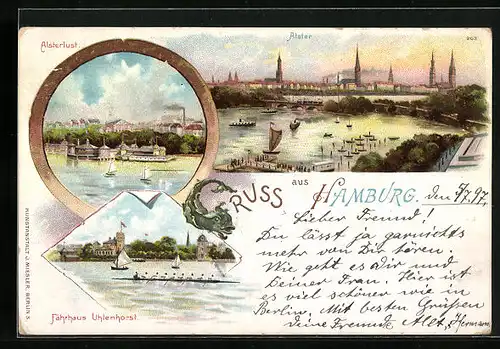 Alsterlust.
Alster
GRUSS aus HAMBURG. den 5/7.97.
Lieber Freund!
Du lässt ja garnichts
mehr von Dir hören.
Wie geht es Dir und
Deiner Frau. Hier ist
es viel schöner wie in
Berlin. Mit besten Grüßen
deine Freunde
Fährhaus Uhlenhorst.
KUNSTANSTALT J. MIESLER, BERLIN S.